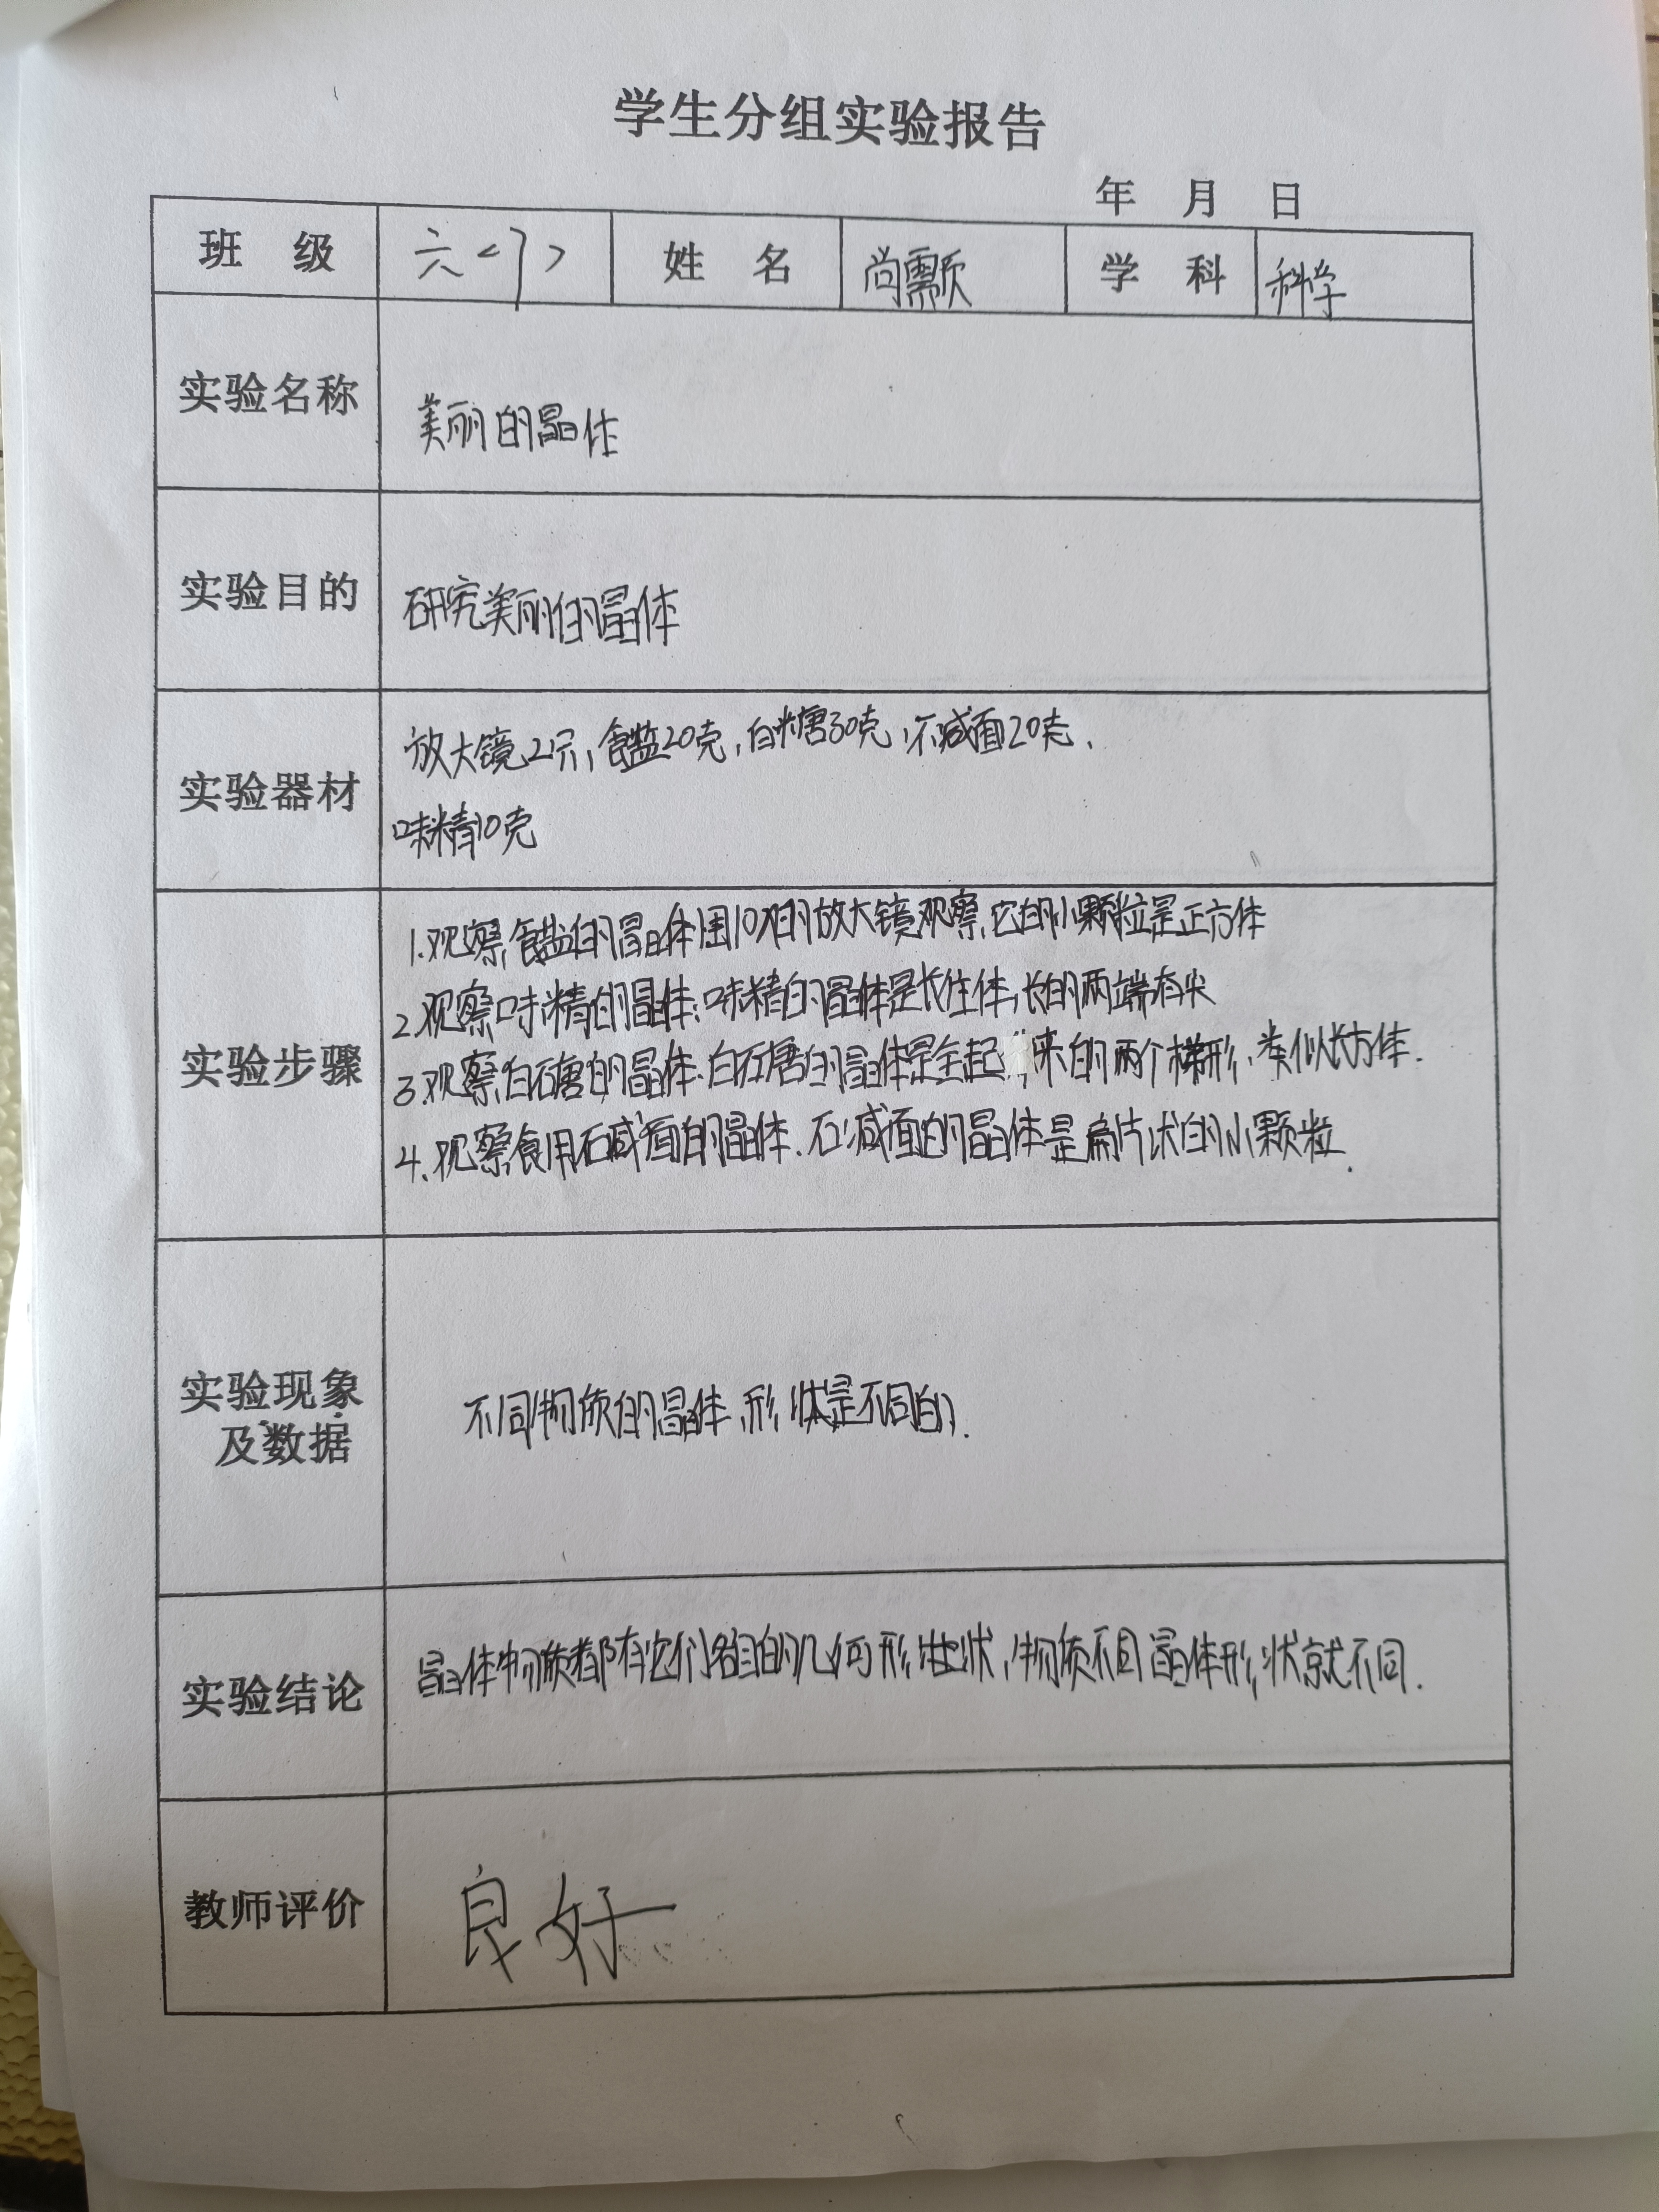 学生分组实验报告
年 月 日
班 级 六<1> 姓 名 尚需颀 学 科 科学
实验名称 美丽的晶体
实验目的 研究美丽的晶体
实验器材 放大镜2只,食盐20克,白糖30克,石咸面20克,
味精10克
实验步骤 1.观察食盐的晶体用10X的放大镜观察,它的小颗粒是正方体
2.观察味精的晶体:味精的晶体是长柱体,长的两端有尖
3.观察白石唐的晶体.白石唐的晶体是全起来的两个梯形,类似长方体.
4.观察食用石咸面的晶体.石咸面的晶体是扁片状的小颗粒.
实验现象
及数据 不同物质的晶体,形状是不同的.
实验结论 晶体物质都有它们各自的几何形状,物质不同晶体形状就不同.
教师评价 良好